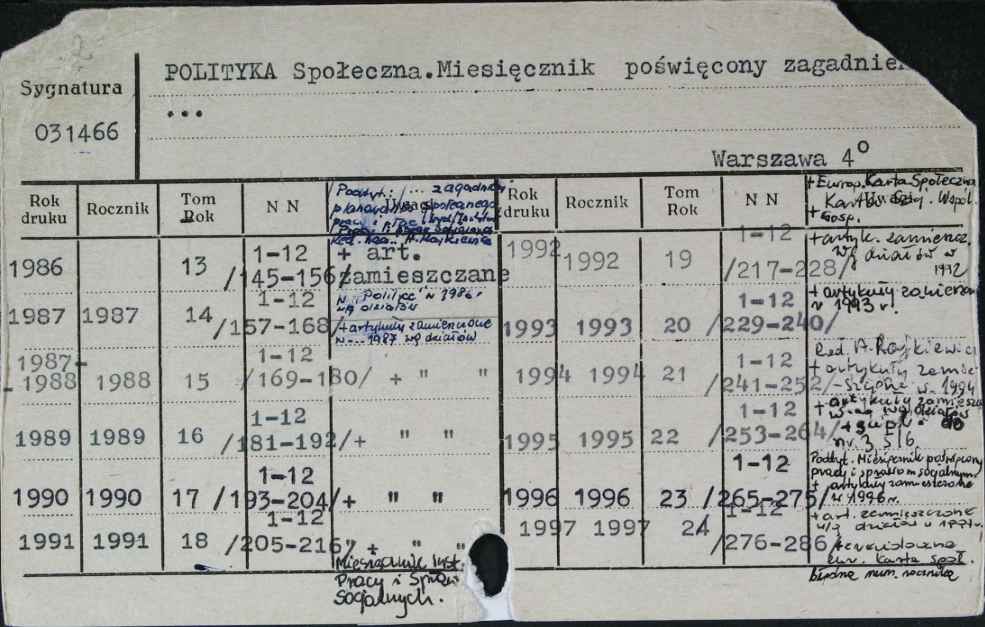 2
Sygnatura
031466
POLITYKA Społeczna.Miesięcznik poświęcony zagadnie
...
Warszawa 4°
Rok druku Rocznik Tom Rok N N Podtyt.: ... zagadnień
planowania społecznego
Rok druku Rocznik Tom Rok N N + Europ. Karta Społeczna
Uwagi
+ Gosp.
1986 13 1-12 /145-156/ + art. zamieszczone
w "Polityce" w 1986 r
wg działów
1987 1987 14 1-12 /157-168/ + artykuły zamieszczone
w ... 1987 wg działów
1987-
-1988 1988 15 1-12 /169-180/ + " "
1989 1989 16 1-12 /181-192/+ " "
1990 1990 17 1-12 /193-204/+ " "
1991 1991 18 1-12 /205-216/ " + " "
Miesięcznik Inst.
Pracy i Spraw
Socjalnych.
1992 1992 19 1-12 /217-228/ + artyk. zamieszcz.
wg działów w
1992
1993 1993 20 1-12 /229-240/ + artykuły zamieszcz
w 1993 r.
1994 1994 21 1-12 /241-252/ Red. A. Rajkiewicz
+ artykuły zamie-
-szczone w 1994
1995 1995 22 1-12 /253-264/ + artykuły zamieszcz
wg działów
+ supl. do
nr. 3 5/6
1996 1996 23 1-12 /265-275/ Podtyt. Miesięcznik poświęcony
pracy i sprawom socjalnym
+ artykuły zamieszczone
w 1996 r.
1997 1997 24 1-12 /276-286/ + art. zamieszczone
wg działów w 1997 r.
eur. karta społ.
błędna num. rocznika